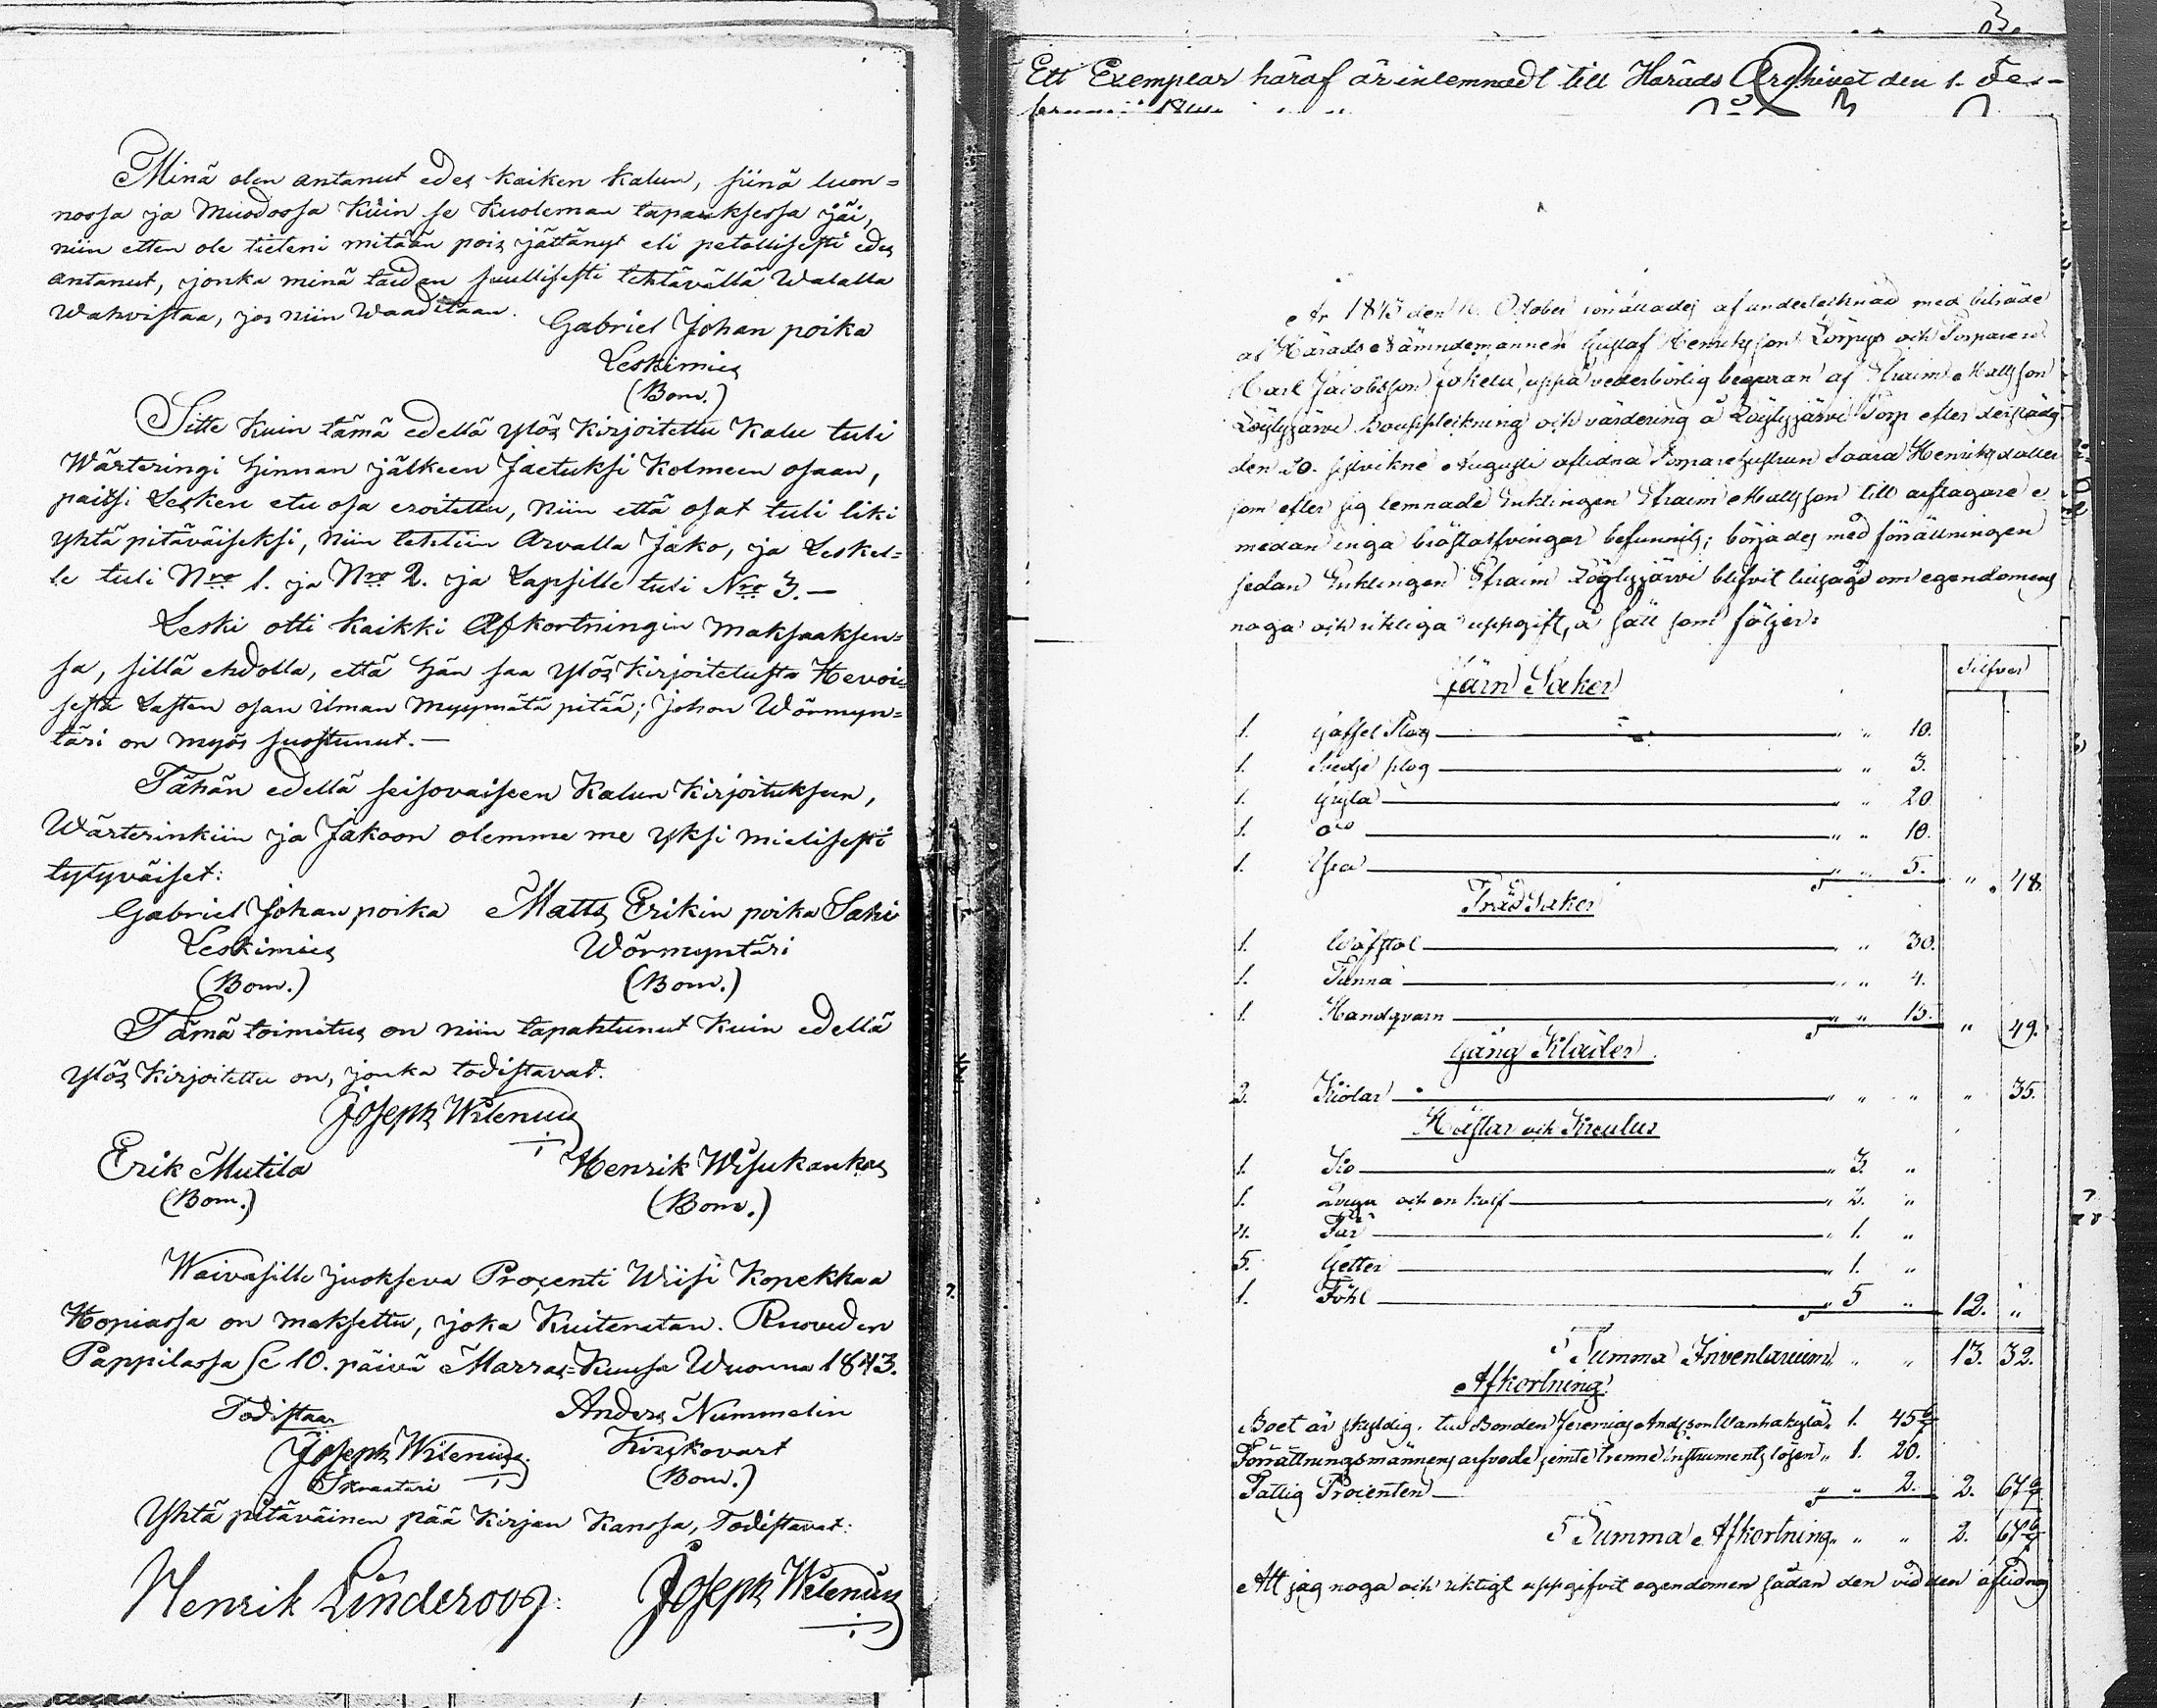 Minä olen antanut edes kaiken kalun, siinä luon=
nossa ja muodossa kuin se kuoleman tapauksessa jäi,
niin etten ole tieteni mitään pois jättänyt eli petollisesti edes
antanut, jonka minä taidan suullisesti tehtävällä Walalla
Wahvistaa, jos niin Waaditaan.
Gabriel Johan poika
Leskimies
(Bom.)
Sitte kuin tämä edellä ylös kirjoitettu kalu tuli
Wärteringi hinnan jälkeen Jaetuksi kolmeen osaan,
paitsi Lesken etu osa eroitettu, niin että osat tuli liki
yhtä pitäväiseksi, niin tehtiin Arvalla Jako, ja Leskel=
le tuli Nro 1. ja Nro 2. ja Lapsille tuli Nro 3.—
Leski otti kaikki Afkortningin maksaaksen=
sa, sillä ehdolla, että hän saa ylös kirjoitetusta Hevoi=
sesta Lasten osan ilman myymätä pitää; johon Wörmyn=
täri on myös suostunut.—
Tähän edellä seisovaiseen Kalun Kirjoituksen,
Wärterinkiin ja Jakoon olemme me yksi mielisesti
tytyväiset:
Gabriel Johan poika Matts Erikin poika Sahi
Leskimies Wörmyntäri
(Bom.) (Bom.)
Tämä toimitus on niin tapahtunut kuin edellä
ylös kirjoitettu on, jonka todistavat.
Joseph Wilenius
Erik Mutila Henrik Wisukankas
(Bom.) (Bom.)
Waivasille juokseva Procenti Wiisi Kopekkaa
Hopiassa on maksettu, joka kuitenatan. Ruoveden
Pappilassa Se 10. päivä Marras=Kuusa Wuonna 1843.
Todistaa Anders Nummelin
Joseph Wilenius. Kirkkovart
Skraatari (Bom.)
Yhtä pitäväinen pää kirjan kanssa, Todistavat:
Henrik Linderoos: Joseph Wilenius
3.
Ett Exemplar häraf är inlemnadt till Härads Archivet den 1. Fe-
År 1843 den October förrättades af undertecknad med biträde
af Härads Nämndemannen Gustaf Henriksson och Torparen
Karl Jacobsson Jokela, uppå vederbörlig begäran af Efraim Mattsson
Löylyjärvi Bouppteckning och värdering å Löylyjärvi Torp efter derstädes
den 30. sistvikne Augusti aflidna Torparehustrun Saara Henriksdotter
som efter sig lemnade Enklingen Efraim Mattsson till arftagare e
medan inga bröstarfvingar befunnits; börjades med förrättningen
sedan Enklingen Efraim Löylyjärvi blifvit tillsagd om egendomens
noga och riktiga uppgift, å sätt som följer:
Silfver
Järn Saker
1. Gaffel Plog " " 10.
1. Swedje plog " " 3.
1. Gryta " " 20
1. d:o " " 10.
1. Yxa " " 5. " 48.
Träd Saker
1. Wäfstol " " 30.
1. Tunna " " 4.
1. Handqvarn " " 15. " 49.
Gång Kläder
2. Kiolar " " " " 35.
Hästar och Kreatur
1. Ko " 3. "
1. Qviga och en kalf " 2. "
4. Får " 1. "
5. Getter " 1. "
1. Föhl " 5 " 12. "
Summa Inventarium " " 13. 32.
Afkortning
Boet är skyldig till Bonden Jeremias Andsson Wanhakylä " 1. 45 5/7
Förrättningsmännens arfvode jemte trenne instruments lösen " 1. 20.
Fattig Procenten " " 2. 2. 67 5/7
Summa Afkortning " " 2. 67 5/7
Att jag noga och riktigt uppgifvit egendomen sådan den vid den aflidnas